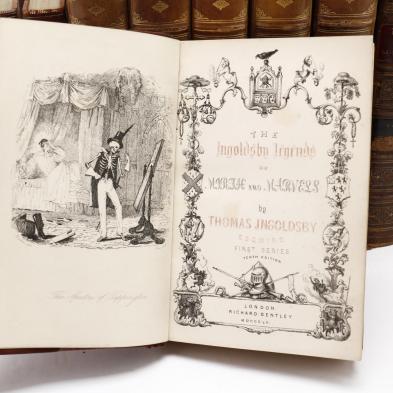 The Spectre of Tappington
THE
Ingoldsby Legends
OR
MIRTH AND MARVELS
by
THOMAS INGOLDSBY
ESQUIRE
FIRST SERIES
TENTH EDITION
LONDON
RICHARD BENTLEY